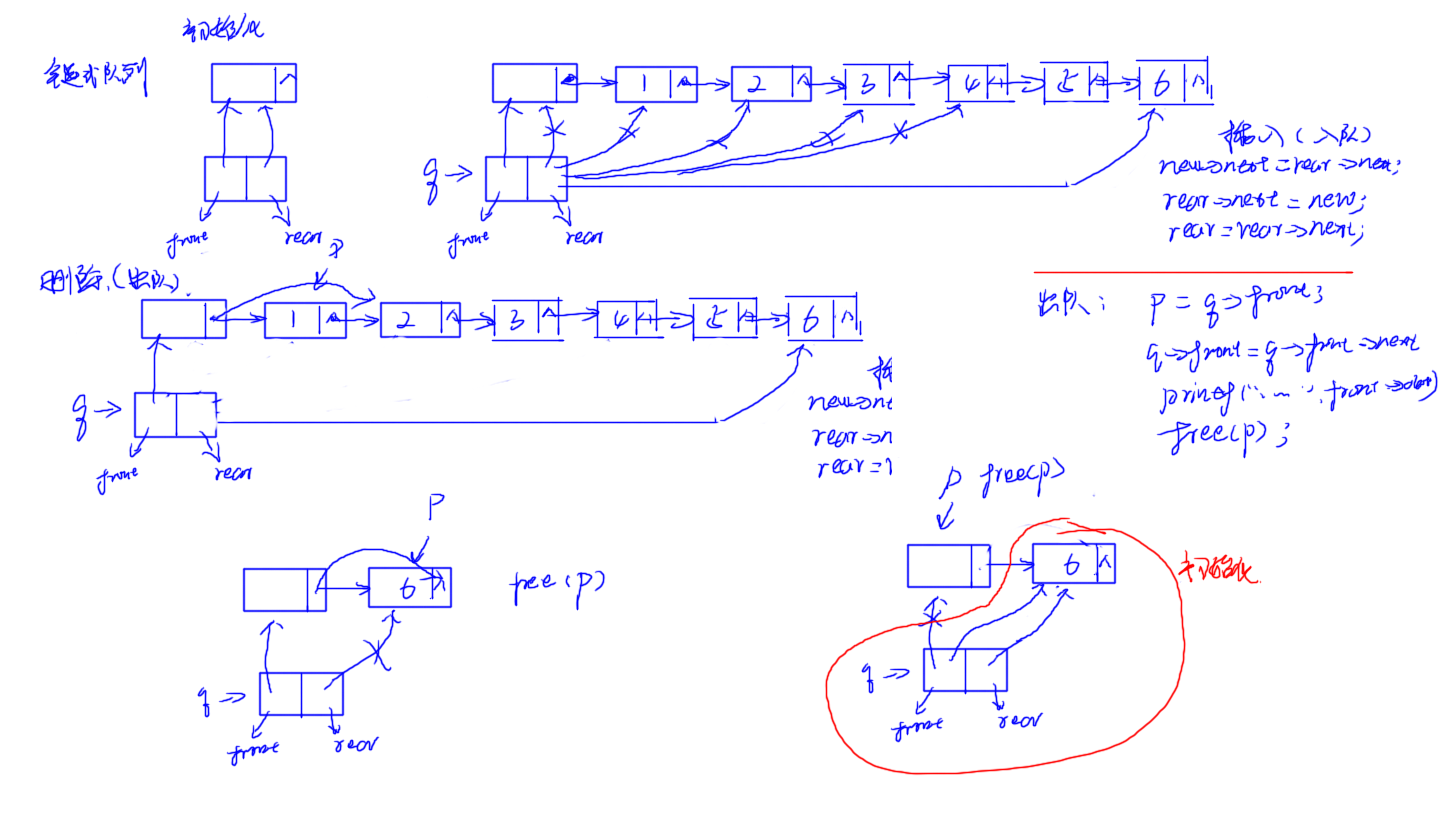 初始化
链式队列
1 2 3 4 5 6
q→
front rear
front rear
插入(入队)
new->next = rear->next;
rear->next = new;
rear = rear->next;
P
删除(出队)
1 2 3 4 5 6
q→
front rear
插
new->ne
rear->n
rear =
出队: P = q->front;
q->front = q->front->next
printf("......", front->data)
free(p);
P
6
free(p)
q→
front rear
P free(p)
6
初始化
q→
front rear